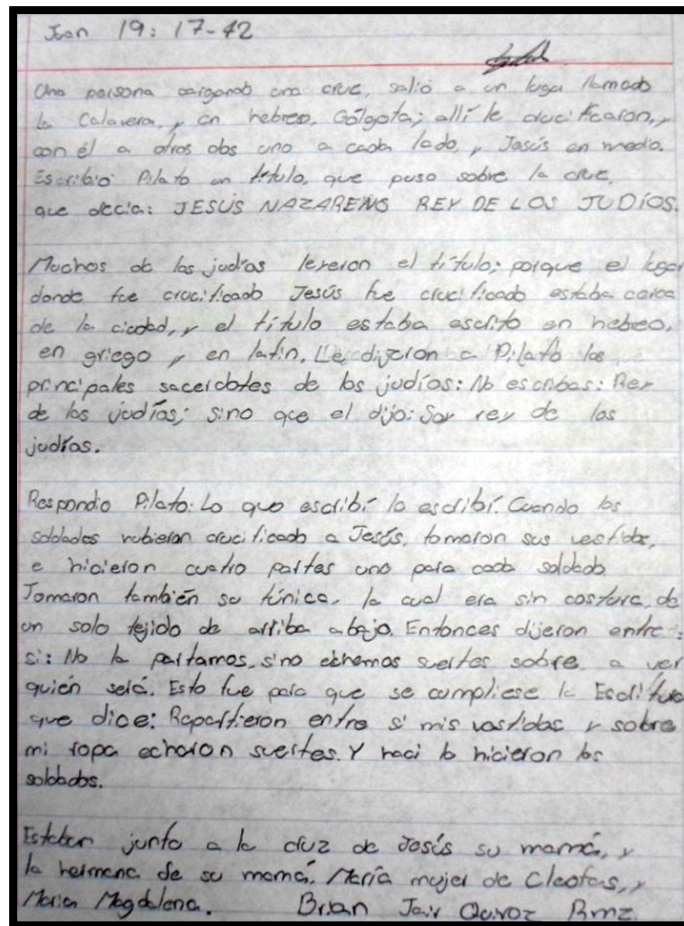 Juan 19: 17-42
Una persona cargando una cruz, salió a un lugar llamado
la Calavera, y en hebreo, Gólgota; allí le crucificaron, y
con él a otros dos uno a cada lado, y Jesús en medio.
Escribio Pilato un título, que puso sobre la cruz,
que decía: JESÚS NAZARENO REY DE LOS JUDÍOS.
Muchos de los judíos leyeron el título; porque el lugar
donde fue crucificado Jesús fue crucificado estaba cerca
de la ciudad, y el título estaba escrito en hebreo,
en griego y en latín. Le dijeron a Pilato los
principales sacerdotes de los judíos: No escribas: Rey
de los judíos; sino que el dijo: Soy rey de los
judías.
Respondio Pilato: Lo que escribí lo escribí. Cuando los
soldados hubieran crucificado a Jesús, tomaron sus vestidos,
e hicieron cuatro partes uno para cada soldado
Tomaron también su túnica, la cual era sin costura, de
un solo tejido de arriba abajo. Entonces dijeron entre
si: No la partamos, sino echemos suertes sobre a ver
quién será. Esto fue para que se cumpliese la Escritura
que dice: Repartieron entre sí mis vestidos y sobre
mi ropa echaron suertes. Y haci lo hicieron los
soldados.
Estaban junto a la cruz de Jesús su mamá, y
la hermana de su mamá. María mujer de Cleofas, y
Maria Magdalena. Brian Jair Quiroz Rmz.